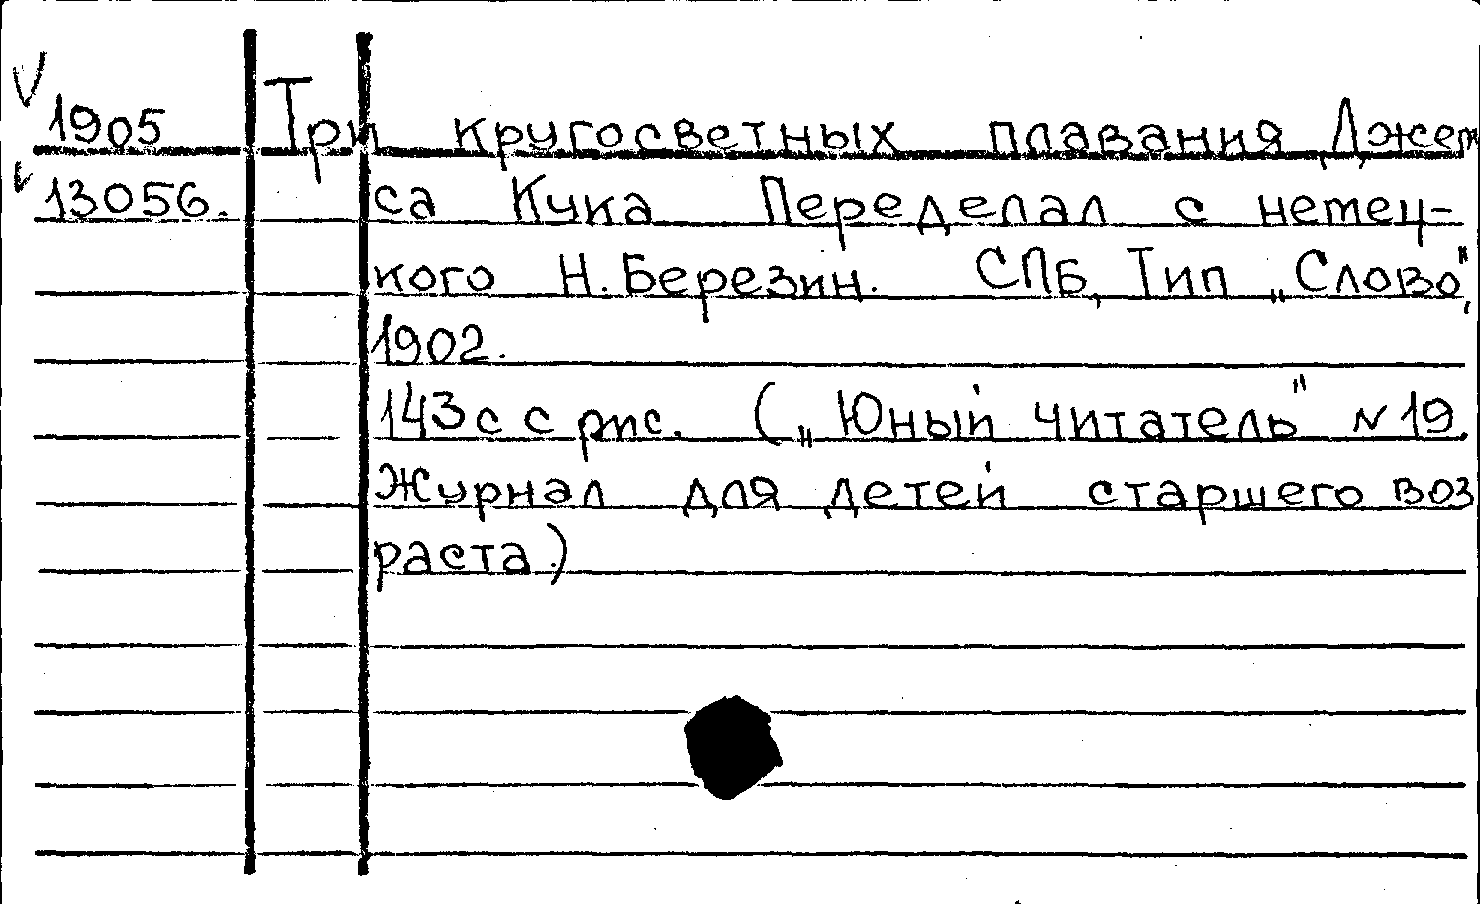 1905 Три кругосветных плавания Джем
13056. са Кука Переделал с немец-
кого Н. Березин. СПБ, Тип „Слово",
1902.
143 с с рис. („Юный читатель" N 19.
Журнал для детей старшего воз
раста.)